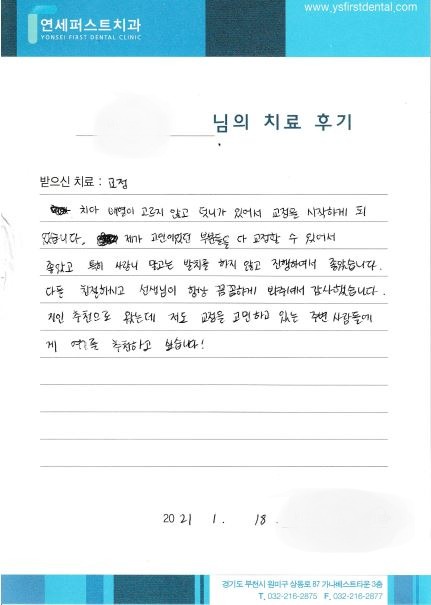 www.ysfirstdental.com
연세퍼스트치과
YONSEI FIRST DENTAL CLINIC
님의 치료 후기
받으신 치료 : 교정
치아 배열이 고르지 않고 덧니가 있어서 교정을 시작하게 되
었습니다. 제가 고민이었던 부분들을 다 교정할 수 있어서
좋았고 특히 사랑니 말고는 발치를 하지 않고 진행하여서 좋았습니다.
다들 친절하시고 선생님이 항상 꼼꼼하게 봐주셔서 감사했습니다.
지인 추천으로 왔는데 저도 교정을 고민하고 있는 주변 사람들에
게 여기를 추천하고 싶습니다!
2021 1. 18
경기도 부천시 원미구 상동로 87 가나베스트타운 3층
T. 032-216-2875 F. 032-216-2877